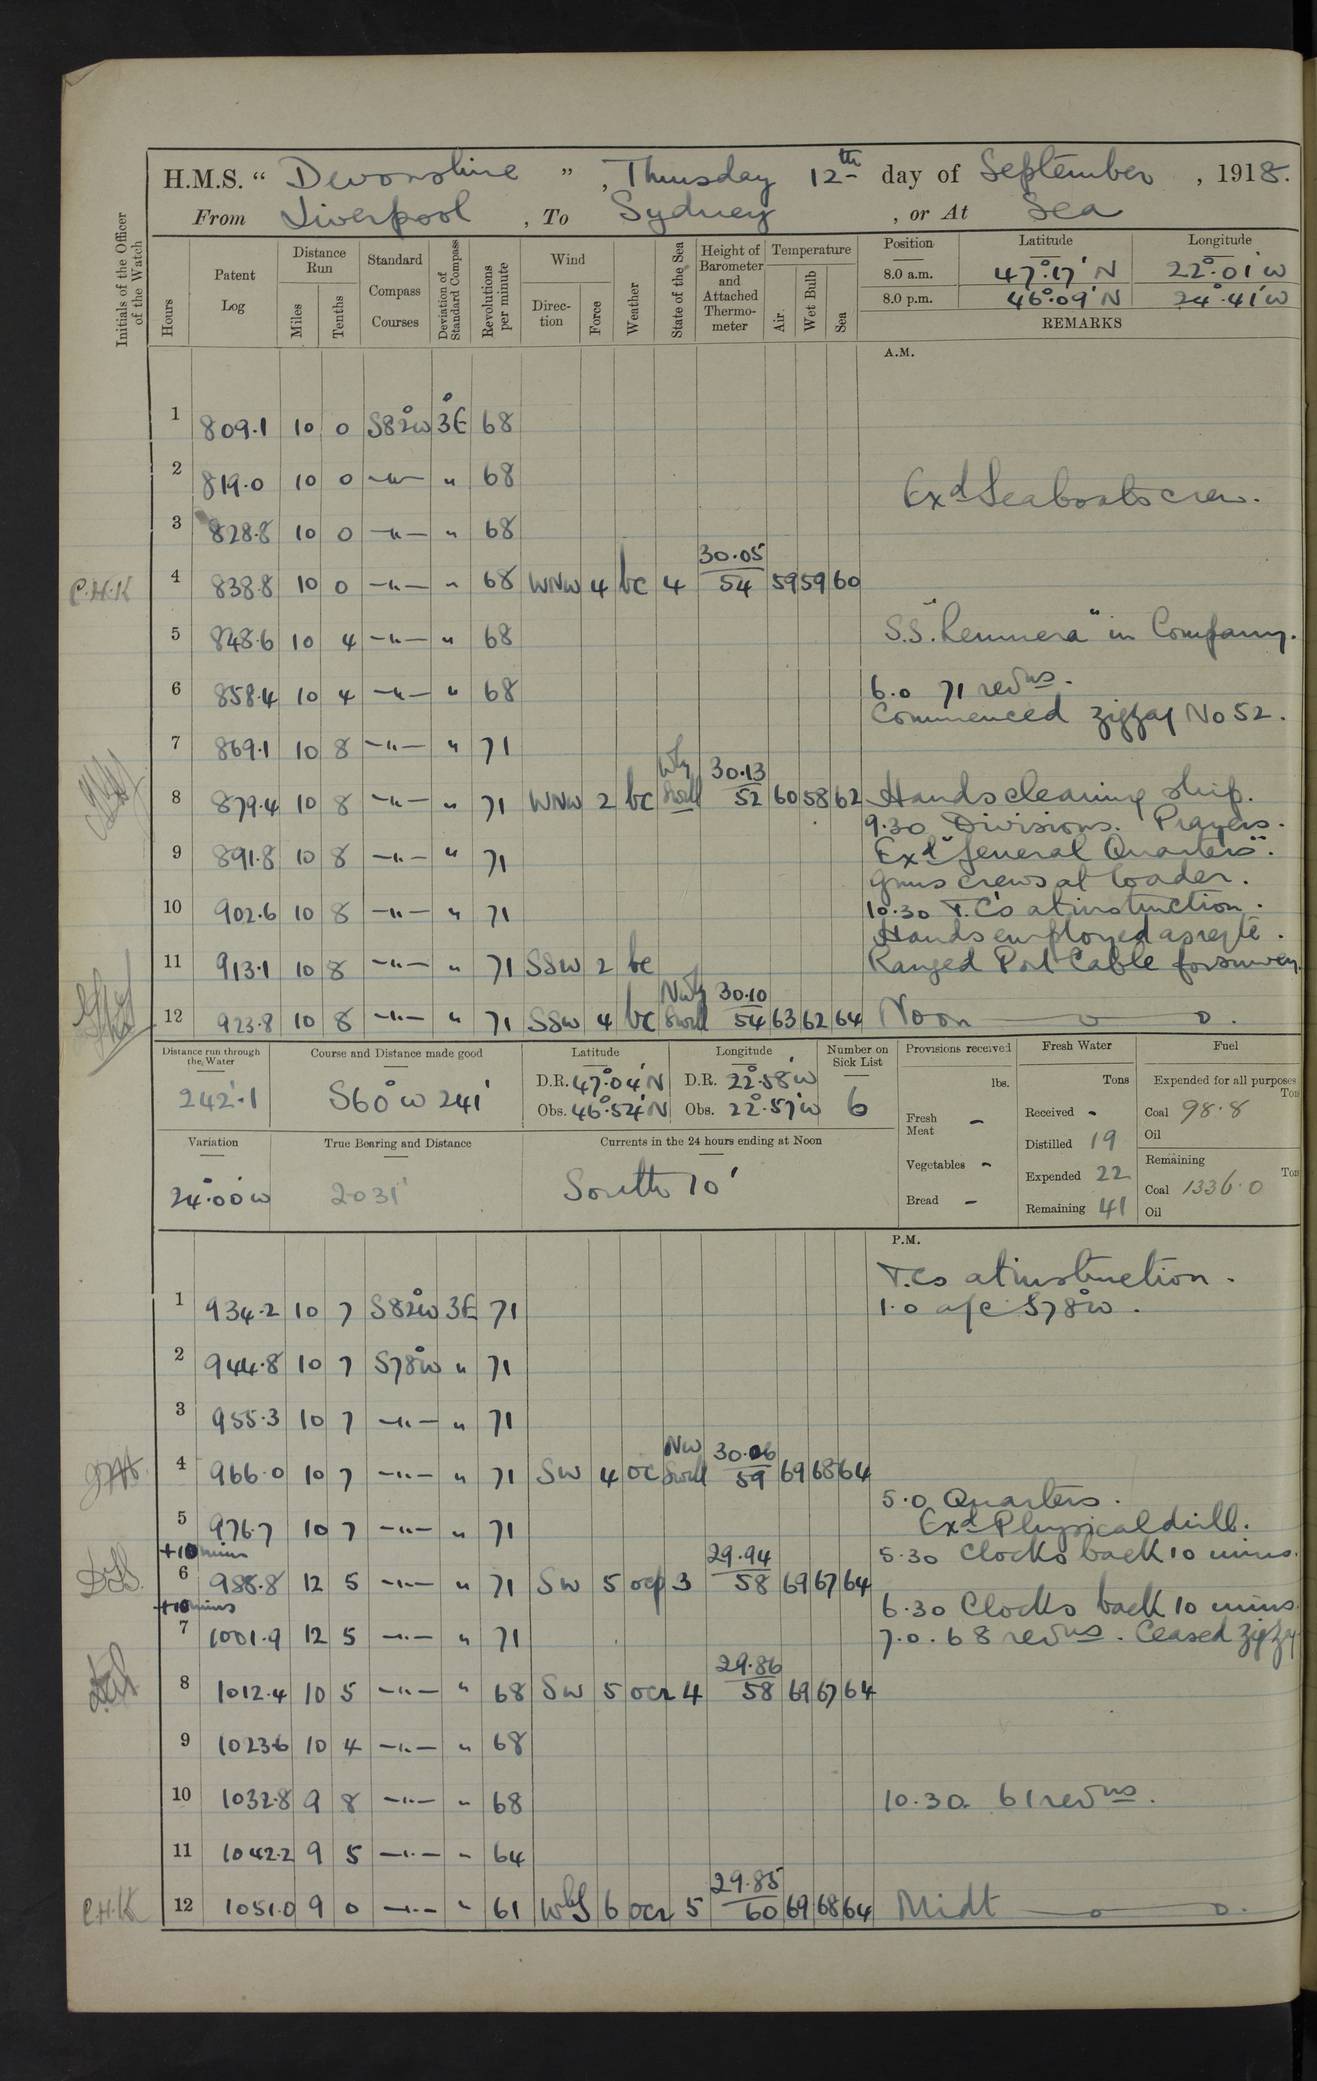 H.M.S. “ Devonshire ” , Thursday 12th day of September , 1918.
From Liverpool , To Sydney , or At Sea
Initials of the Officer of the Watch
Hours Patent Log Distance Run Miles Tenths Standard Compass Courses Deviation of Standard Compass Revolutions per minute Wind Direction Force Weather State of the Sea Height of Barometer and Attached Thermometer Temperature Air. Wet Bulb Sea
Position Latitude Longitude
8.0 a.m. 47°.17' N 22°.01' W
8.0 p.m. 46°.09' N 24°.41' W
REMARKS
A.M.
1 809.1 10 0 S82°W 3°E 68
2 819.0 10 0 –"– " 68 Exd Seaboats crew.
3 828.8 10 0 –"– " 68
C.H.K 4 838.8 10 0 –"– " 68 WNW 4 bc 4 30.05 54 59 59 60
5 848.6 10 4 –"– " 68 S.S. "Remuera" in Company.
6 858.4 10 4 –"– " 68 6.0 71 revns.
Commenced zigzag No 52.
7 869.1 10 8 –"– " 71
8 879.4 10 8 –"– " 71 WNW 2 bc Wly Swell 30.13 52 60 58 62 Hands cleaning ship.
9.30 Divisions. Prayers.
9 891.8 10 8 –"– " 71 Exd "General Quarters".
Guns crews at loader.
10 902.6 10 8 –"– " 71 10.30 T.C's at instruction.
Hands employed as reqte.
11 913.1 10 8 –"– " 71 SSW 2 bc Ranged Port Cable for survey.
12 923.8 10 8 –"– " 71 SSW 4 bc NWly Swell 30.10 54 63 62 64 Noon
Distance run through the Water 242'.1
Course and Distance made good S60°W 241'
Latitude D.R. 47°.04'N Obs. 46°.54'N
Longitude D.R. 22°.58'W Obs. 22°.57'W
Number on Sick List 6
Variation 24°.00'W
True Bearing and Distance 2031'
Currents in the 24 hours ending at Noon South 10'
Provisions received lbs.
Fresh Meat -
Vegetables -
Bread -
Fresh Water Tons
Received -
Distilled 19
Expended 22
Remaining 41
Fuel
Expended for all purposes Tons
Coal 98.8
Oil
Remaining Tons
Coal 1336.0
Oil
P.M.
T.Cs at instruction.
1 934.2 10 7 S82°W 3E 71 1.0 a/c S78°W.
2 944.8 10 7 S78°W " 71
3 955.3 10 7 –"– " 71
4 966.0 10 7 –"– " 71 SW 4 oc NW Swell 30.06 59 69 68 64
5.0 Quarters.
5 976.7 10 7 –"– " 71 Exd Physical drill.
+10 mins 5.30 Clocks back 10 mins.
6 988.8 12 5 –"– " 71 SW 5 ocp 3 29.94 58 69 67 64
+10 mins 6.30 Clocks back 10 mins.
7 1001.9 12 5 –"– " 71 7.0. 68 revns. Ceased zigzag
8 1012.4 10 5 –"– " 68 SW 5 ocr 4 29.86 58 69 67 64
9 1023.6 10 4 –"– " 68
10 1032.8 9 8 –"– " 68 10.30. 61 revns.
11 1042.2 9 5 –"– " 64
C.H.K 12 1051.0 9 0 –"– " 61 WbS 6 ocr 5 29.85 60 69 68 64 Midt